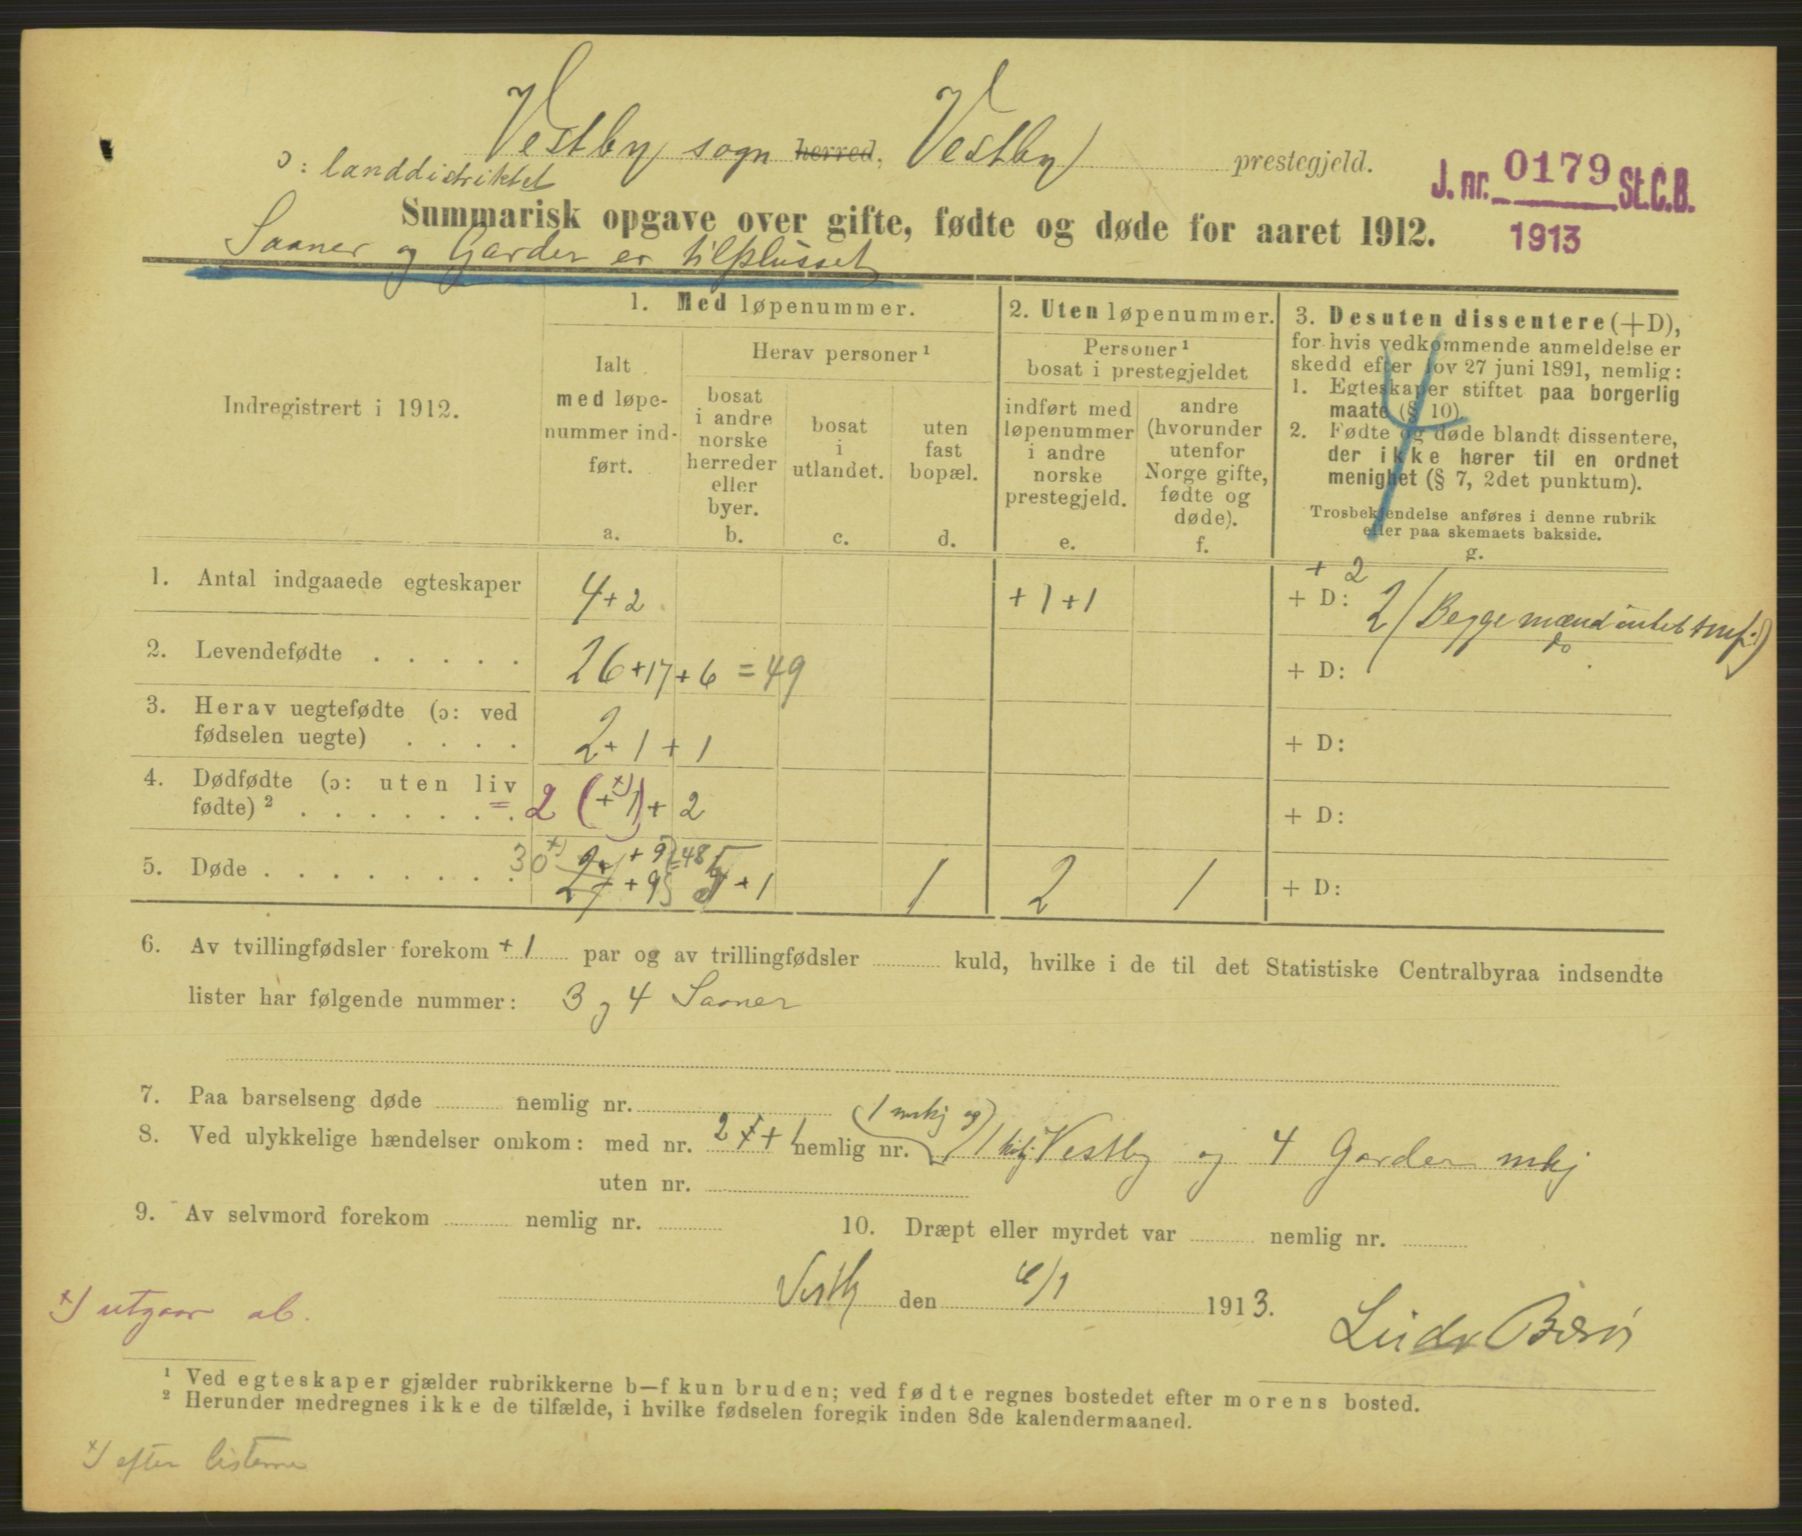 Vestby sogn herred, Vestby prestegjeld.
ɔ: landdistriktet
J. nr. 0179 St.C.B.
1913
Summarisk opgave over gifte, fødte og døde for aaret 1912.
Saaner og Garder er tilplusset
Indregistrert i 1912.
1. Med løpenummer.
Ialt
med løpe-
nummer ind-
ført.
a.
Herav personer ¹
bosat
i andre
norske
herreder
eller
byer.
b.
bosat
i
utlandet.
c.
uten
fast
bopæl.
d.
2. Uten løpenummer.
Personer ¹
bosat i prestegjeldet
indført med
løpenummer
i andre
norske
prestegjeld.
e.
andre
(hvorunder
utenfor
Norge gifte,
fødte og
døde).
f.
3. Desuten dissentere (+D),
for hvis vedkommende anmeldelse er
skedd efter lov 27 juni 1891, nemlig:
1. Egteskaper stiftet paa borgerlig
maate (§ 10).
2. Fødte og døde blandt dissentere,
der ikke hører til en ordnet
menighet (§ 7, 2det punktum).
Trosbekjendelse anføres i denne rubrik
eller paa skemaets bakside.
g.
+ 2
1. Antal indgaaede egteskaper 4+2 +1+1 + D: 2 (Begge mænd
2. Levendefødte . . . . . 26+17+6 = 49 + D:
3. Herav uegtefødte (ɔ: ved
fødselen uegte) . . . . 2+1+1 + D:
4. Dødfødte (ɔ: uten liv
fødte) ² . . . . . . . = 2 (+1)+2 + D:
5. Døde . . . . . . . . 30 27 +9 +1 1 2 1 + D:
6. Av tvillingfødsler forekom +1 par og av trillingfødsler kuld, hvilke i de til det Statistiske Centralbyraa indsendte
lister har følgende nummer: 3 og 4 Saaner
7. Paa barselseng døde nemlig nr.
(1 mkj og)
8. Ved ulykkelige hændelser omkom: med nr. 2 +1 nemlig nr. 1 Vestby og 4 Garder mkj
uten nr.
9. Av selvmord forekom nemlig nr.
10. Dræpt eller myrdet var nemlig nr.
Vestby den 6/1 1913.
x) utgaar
¹ Ved egteskaper gjælder rubrikkerne b—f kun bruden; ved fødte regnes bostedet efter morens bosted.
² Herunder medregnes ikke de tilfælde, i hvilke fødselen foregik inden 8de kalendermaaned.
x) efter listerne